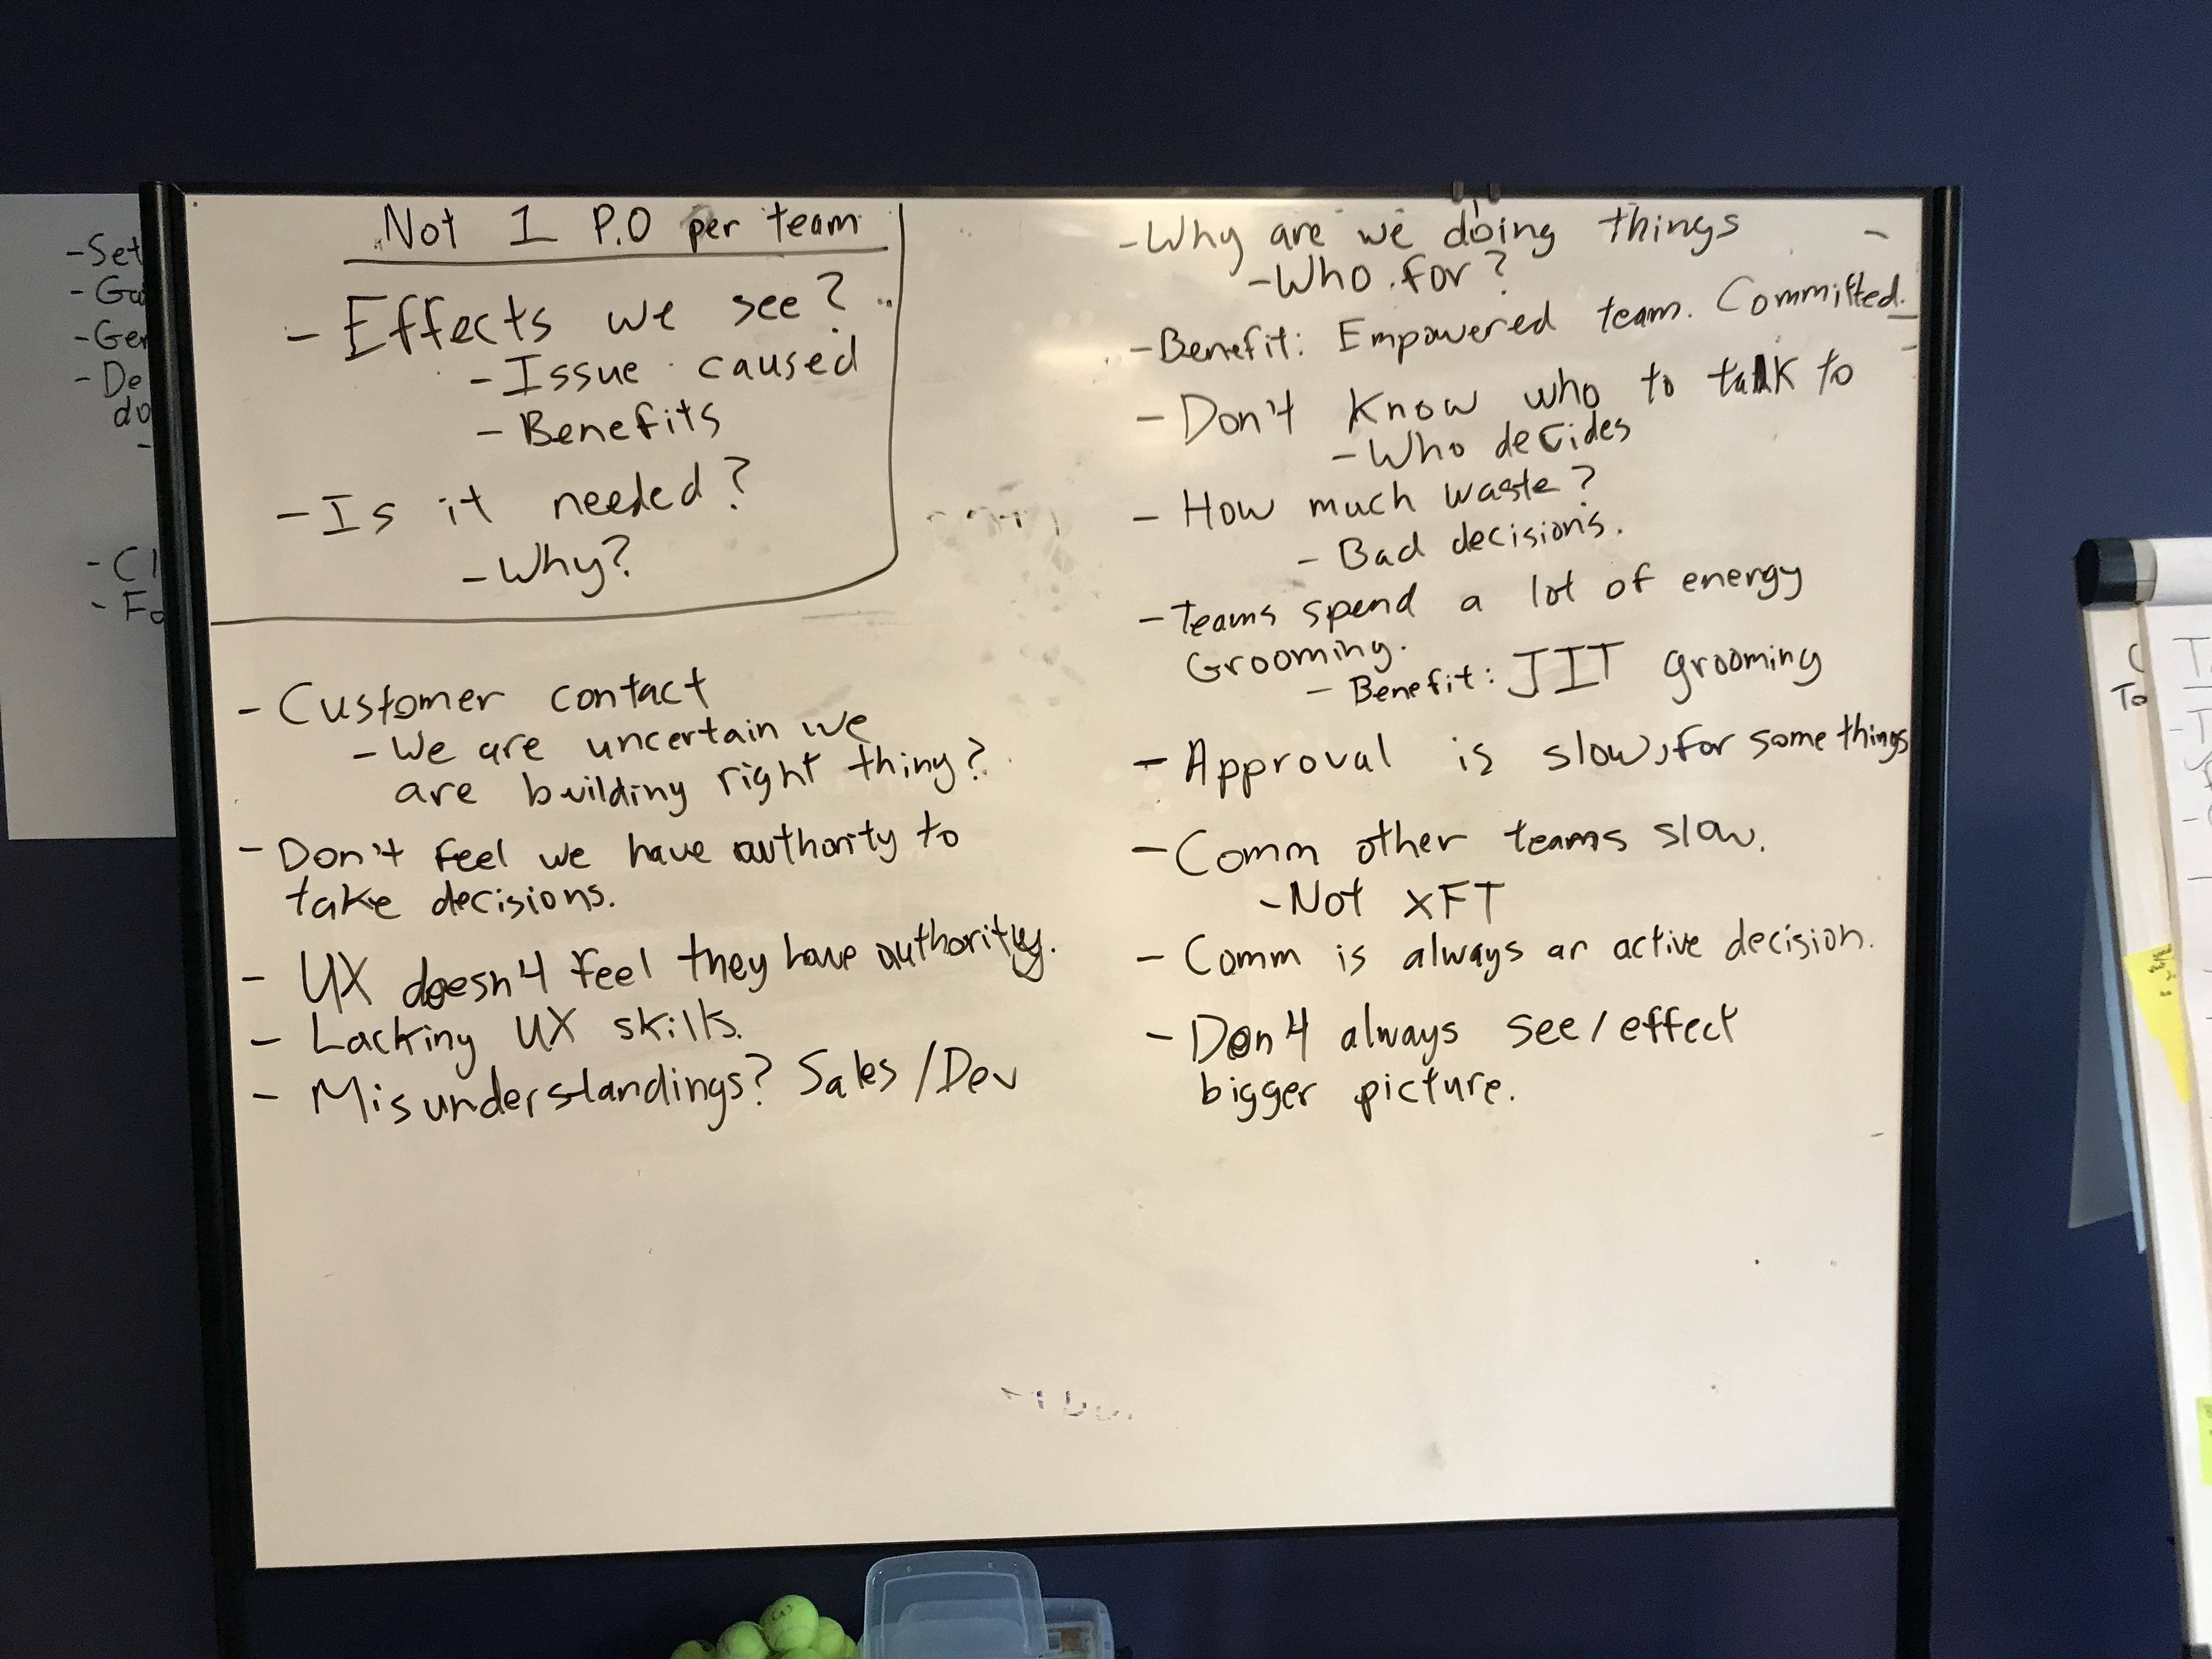 Not 1 P.O per team
- Effects we see?
- Issue caused
- Benefits
- Is it needed?
- Why?
- Customer contact
- We are uncertain we
are building right thing?
- Don't feel we have authority to
take decisions.
- UX doesn't feel they have authority.
- Lacking UX skills.
- Misunderstandings? Sales/Dev
- Why are we doing things
- Who for?
- Benefit: Empowered team. Committed.
- Don't know who to talk to
- Who decides
- How much waste?
- Bad decisions.
- Teams spend a lot of energy
Grooming.
- Benefit: JIT grooming
- Approval is slow, for some things
- Comm other teams slow.
- Not xFT
- Comm is always an active decision.
- Don't always see/effect
bigger picture.
- Set
- De
do